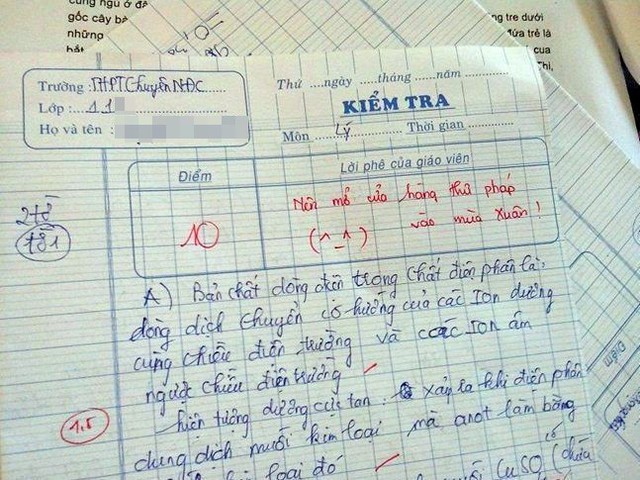 cùng ngủ ở đâ
gốc cây bà
những
hắt
ng tre dưới
đứa trẻ là
của
Thi,
Trường : THPT Chuyên NĐC
Lớp : 11
Họ và tên :
Thứ ....ngày .....tháng ......năm
KIỂM TRA
Môn Lý Thời gian
Điểm
Lời phê của giáo viên
10
Nên mở cửa hàng thư pháp
vào mùa xuân !
(^_^)
2tờ
tờ1
A) Bản chất dòng điện trong chất điện phân là:
dòng dịch chuyển có hướng của các Ion dương
cùng chiều điện trường và các Ion âm
ngược chiều điện trường
1.5
hiện tượng dương cực tan : xảy ra khi điện phân
dung dịch muối kim loại mà anot làm bằng
loại đó
muối CuSO4 (chứa
Điểm